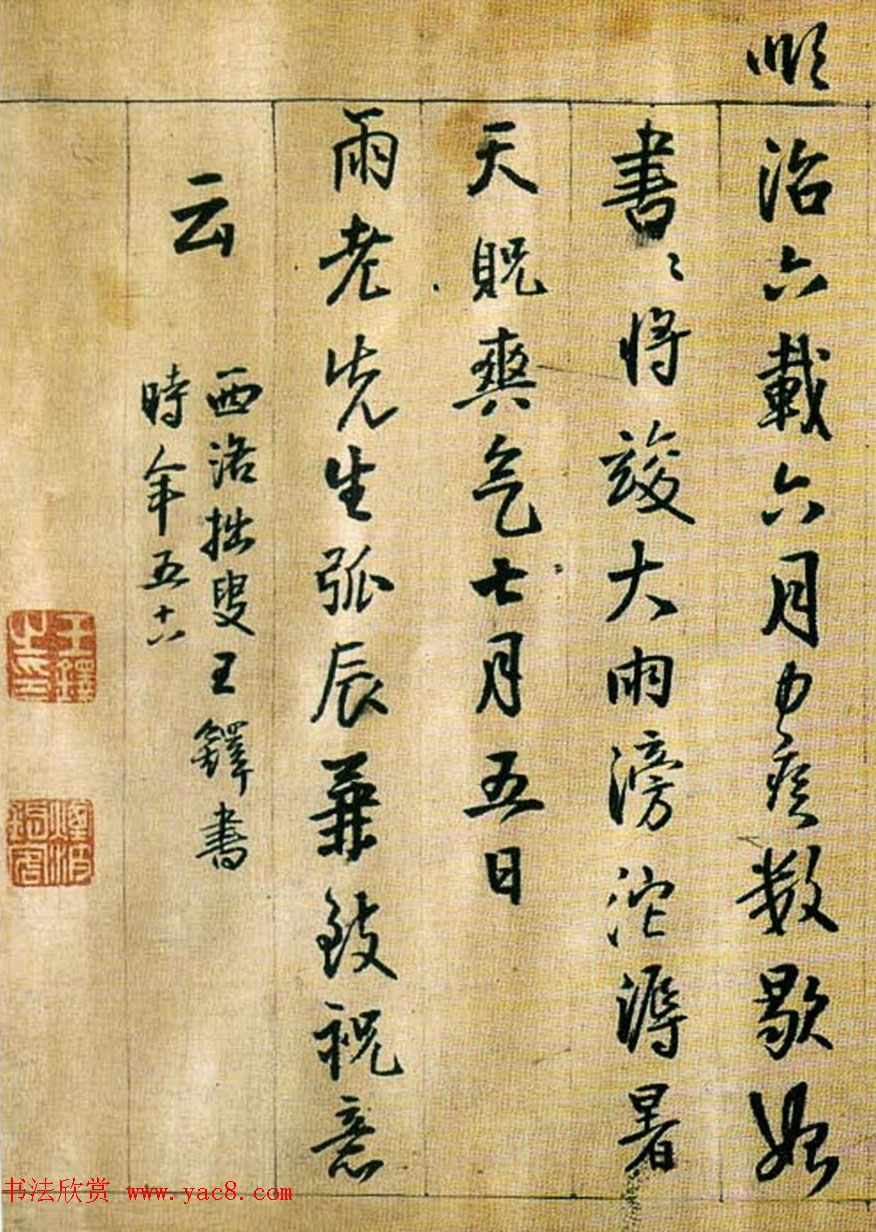 順治六載六月力疾數歇始
書書將竣大雨滂沱溽暑
天貺爽气七月五日
雨老先生弧辰兼致祝意
云
西洛拙叟王鐸書
時年五十六
王鐸之印
书法欣赏 www.yac8.com